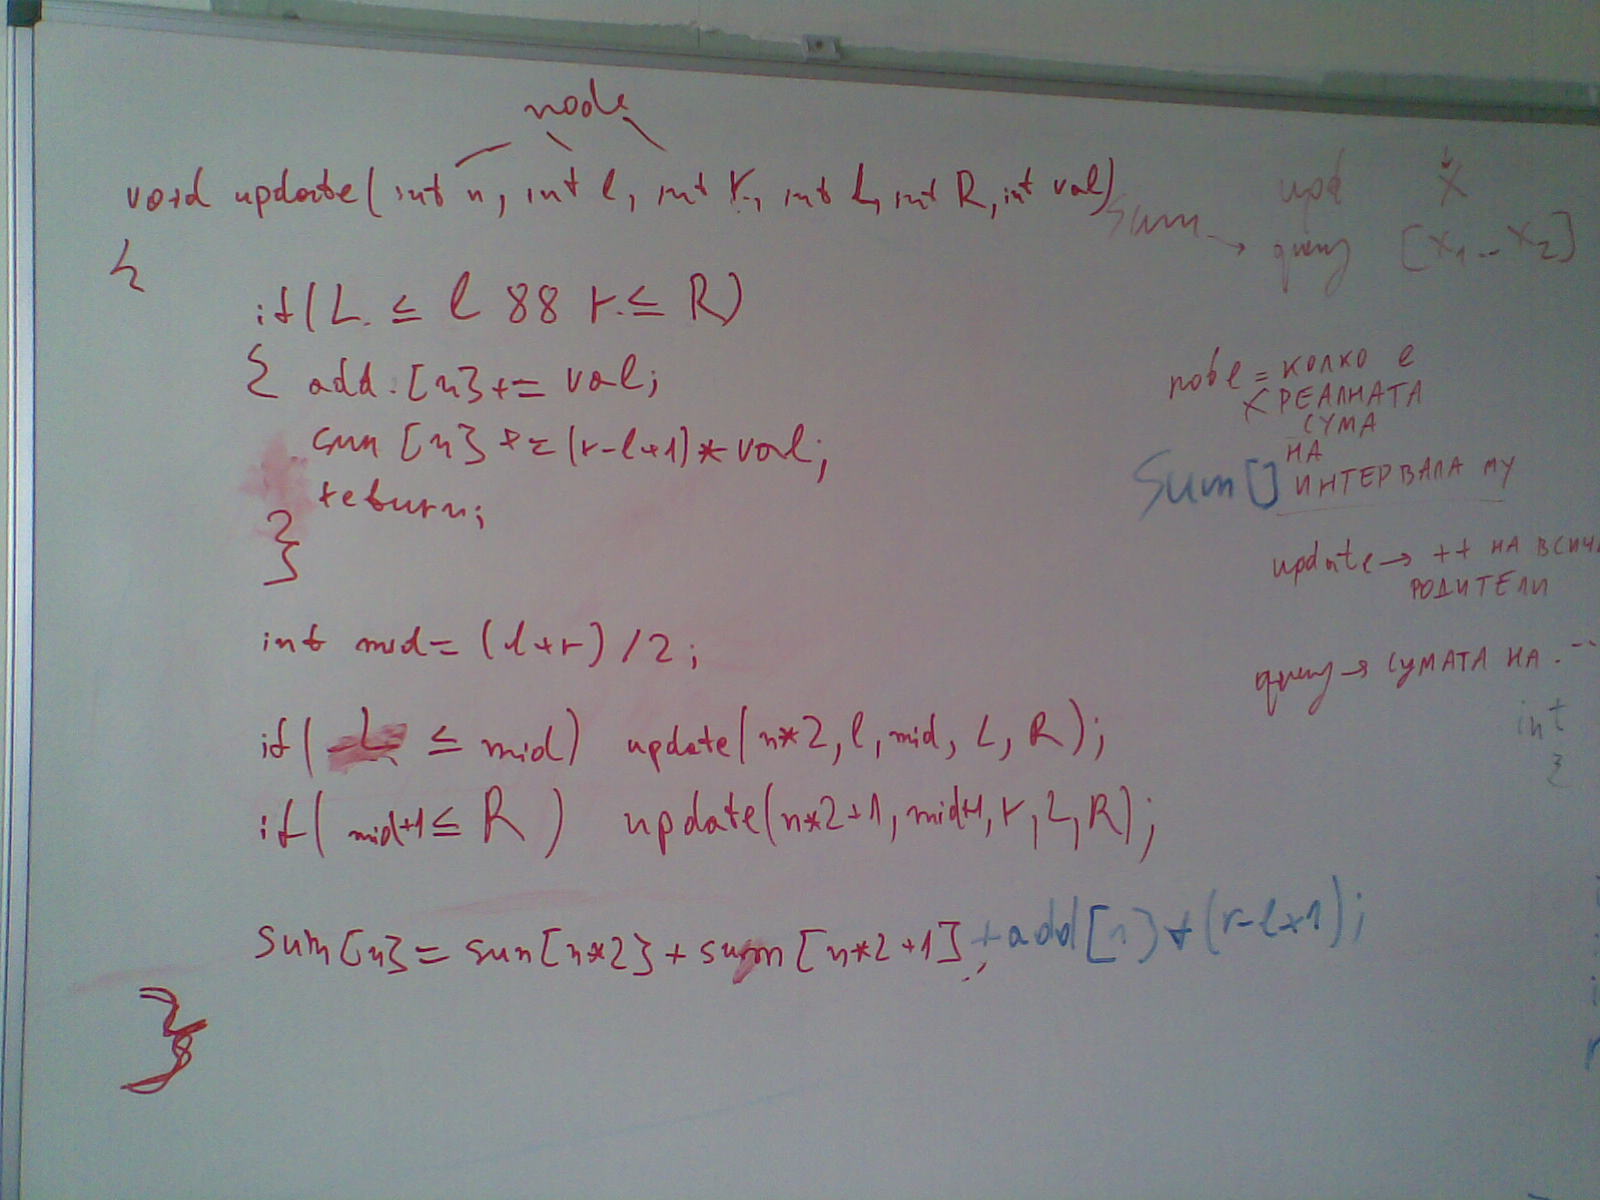 node
void update(int n, int l, int r, int L, int R, int val)
{
if(L ≤ l && r ≤ R)
{ add[n] += val;
sum[n] += (r-l+1)*val;
return;
}
int mid = (l+r)/2;
if( L ≤ mid) update(n*2, l, mid, L, R);
if( mid+1 ≤ R ) update(n*2+1, mid+1, r, L, R);
sum[n] = sum[n*2] + sum[n*2+1] + add[n]*(r-l+1);
}
upd X
Sum → query [x1 .. x2]
node = КОЛКО е
РЕАЛНАТА
СУМА
НА
Sum[] ИНТЕРВАЛА МУ
update → ++ НА ВСИЧ
РОДИТЕЛИ
query → СУМАТА НА ...
int
{